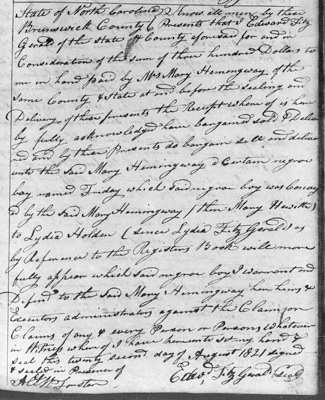 State of North Carolina } Know all men by these
Brunswick County } Presents that I Edward Fitz
Gerald of the State & County aforesaid for and in
Consideration of the sum of three hundred Dollars to
me in hand paid by Mrs Mary Hemongway of the
Same County & State at and before the Sealing and
Delivery of these presents the Receipt whereof is here
by fully acknowledged have bargained sold & Deliver
ed and by these Presents do bargain sell and deliver
unto the said Mary Hemingway a Certain negroe
boy named Friday which said negroe boy was Convey
d by the said Mary Hemongway (then Mary Hewitt)
to Lydia Holder (since Lydia Fitz Gerald) as
by Reference to the Registers Book will more
fully appear which said negroe boy I warrant and
Defend to the said Mary Hemingway her heirs &
Executors administrators against the Claim or
Claims of any & every Person or Persons Whatever
in Witness whereof I have hereunto set my hand &
seal this twenty second day of August 1821 signed
& seald in Presence of
Edwd Fitz Gerald Seal